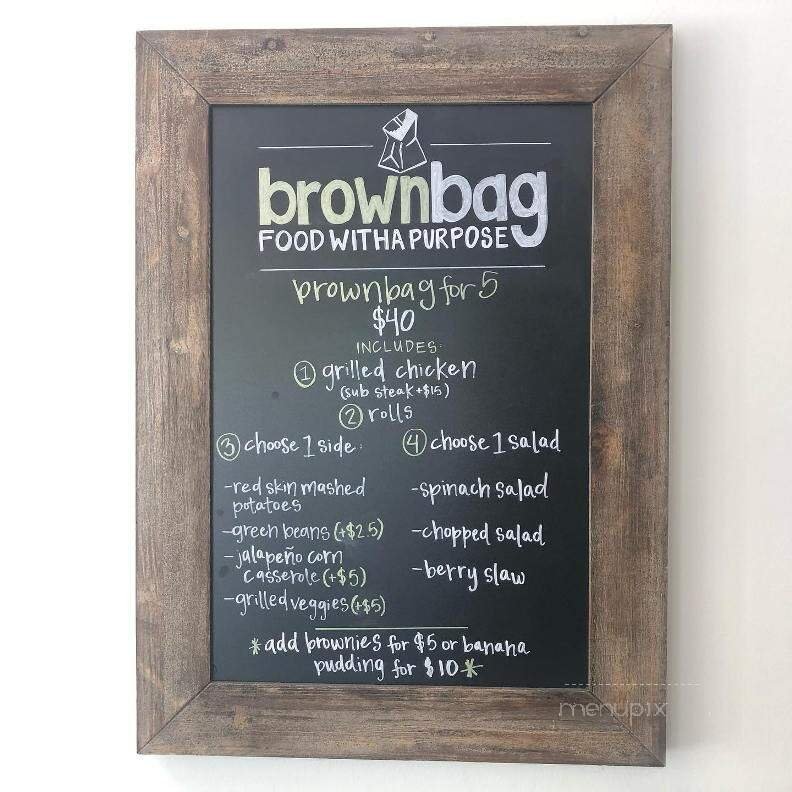 brownbag
FOOD WITH A PURPOSE
brownbag for 5
$40
INCLUDES:
1 grilled chicken
(sub steak +$15)
2 rolls
3 choose 1 side:
-red skin mashed
potatoes
-green beans (+$2.5)
-jalapeño corn
casserole (+$5)
-grilled veggies (+$5)
4 choose 1 salad
-spinach salad
-chopped salad
-berry slaw
*add brownies for $5 or banana
pudding for $10*
menupix